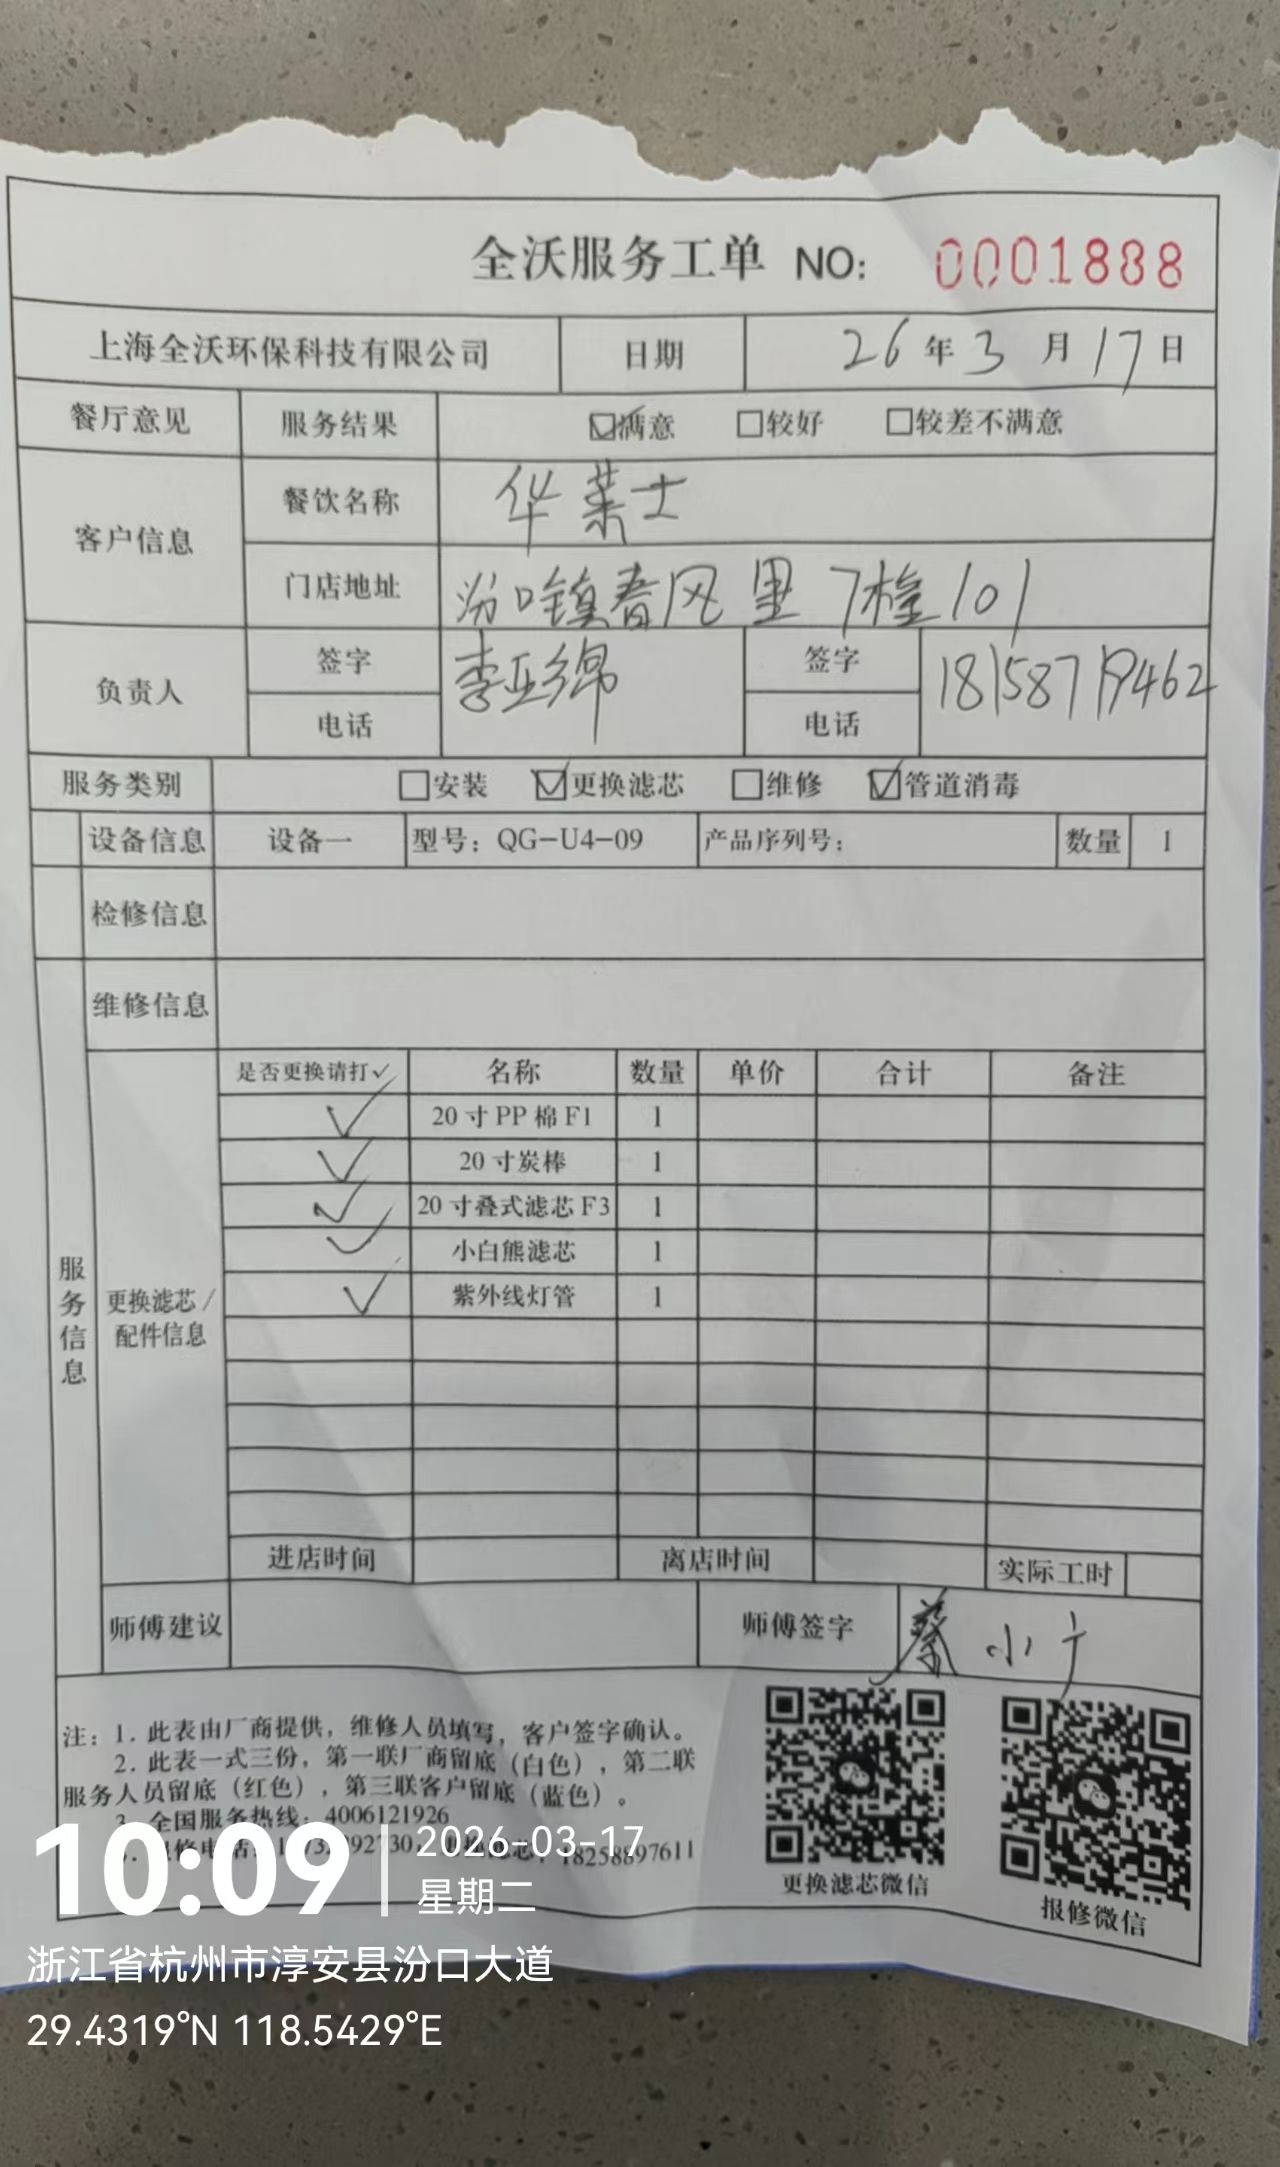 全沃服务工单 NO: 0001888
上海全沃环保科技有限公司 日期 26年3月17日
餐厅意见 服务结果 ☑满意 □较好 □较差不满意
客户信息 餐饮名称 华莱士
门店地址 汾口镇春风里7幢101
负责人 签字 李亚绵 签字 18158719462
电话 电话
服务类别 □安装 ☑更换滤芯 □维修 ☑管道消毒
设备信息 设备一 型号：QG-U4-09 产品序列号： 数量 1
检修信息
维修信息
服务信息
更换滤芯/
配件信息
是否更换请打✓ 名称 数量 单价 合计 备注
✓ 20寸PP棉F1 1
✓ 20寸炭棒 1
✓ 20寸叠式滤芯F3 1
✓ 小白熊滤芯 1
✓ 紫外线灯管 1
进店时间 离店时间 实际工时
师傅建议 师傅签字 蔡小
注：1. 此表由厂商提供，维修人员填写，客户签字确认。
2. 此表一式三份，第一联厂商留底（白色），第二联
服务人员留底（红色），第三联客户留底（蓝色）。
3. 全国服务热线：4006121926
18258897611
更换滤芯微信
报修微信
10:09
2026-03-17
星期二
浙江省杭州市淳安县汾口大道
29.4319°N 118.5429°E